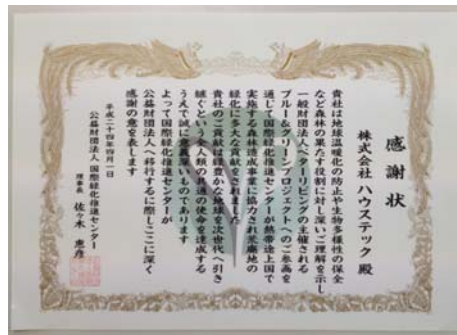 感謝状
株式会社 ハウステック 殿
貴社は地球温暖化の防止や生物多様性の保全
など森林の果たす役割に対し深いご理解を示し
一般財団法人ベターリビングの主催される
ブルー&グリーンプロジェクトへのご参画を
通じて国際緑化推進センターが熱帯途上国で
実施する森林造成事業に協力され荒廃地の
緑化に多大な貢献をされました
貴社のご貢献は緑豊かな地球を次世代へ引き
継ぐという全人類の共通の使命を達成する
うえで誠に意義深いものであります
よって国際緑化推進センターが
公益財団法人へ移行するに際しここに深く
感謝の意を表します
平成二十四年四月一日
公益財団法人 国際緑化推進センター
理事長 佐々木 惠彦